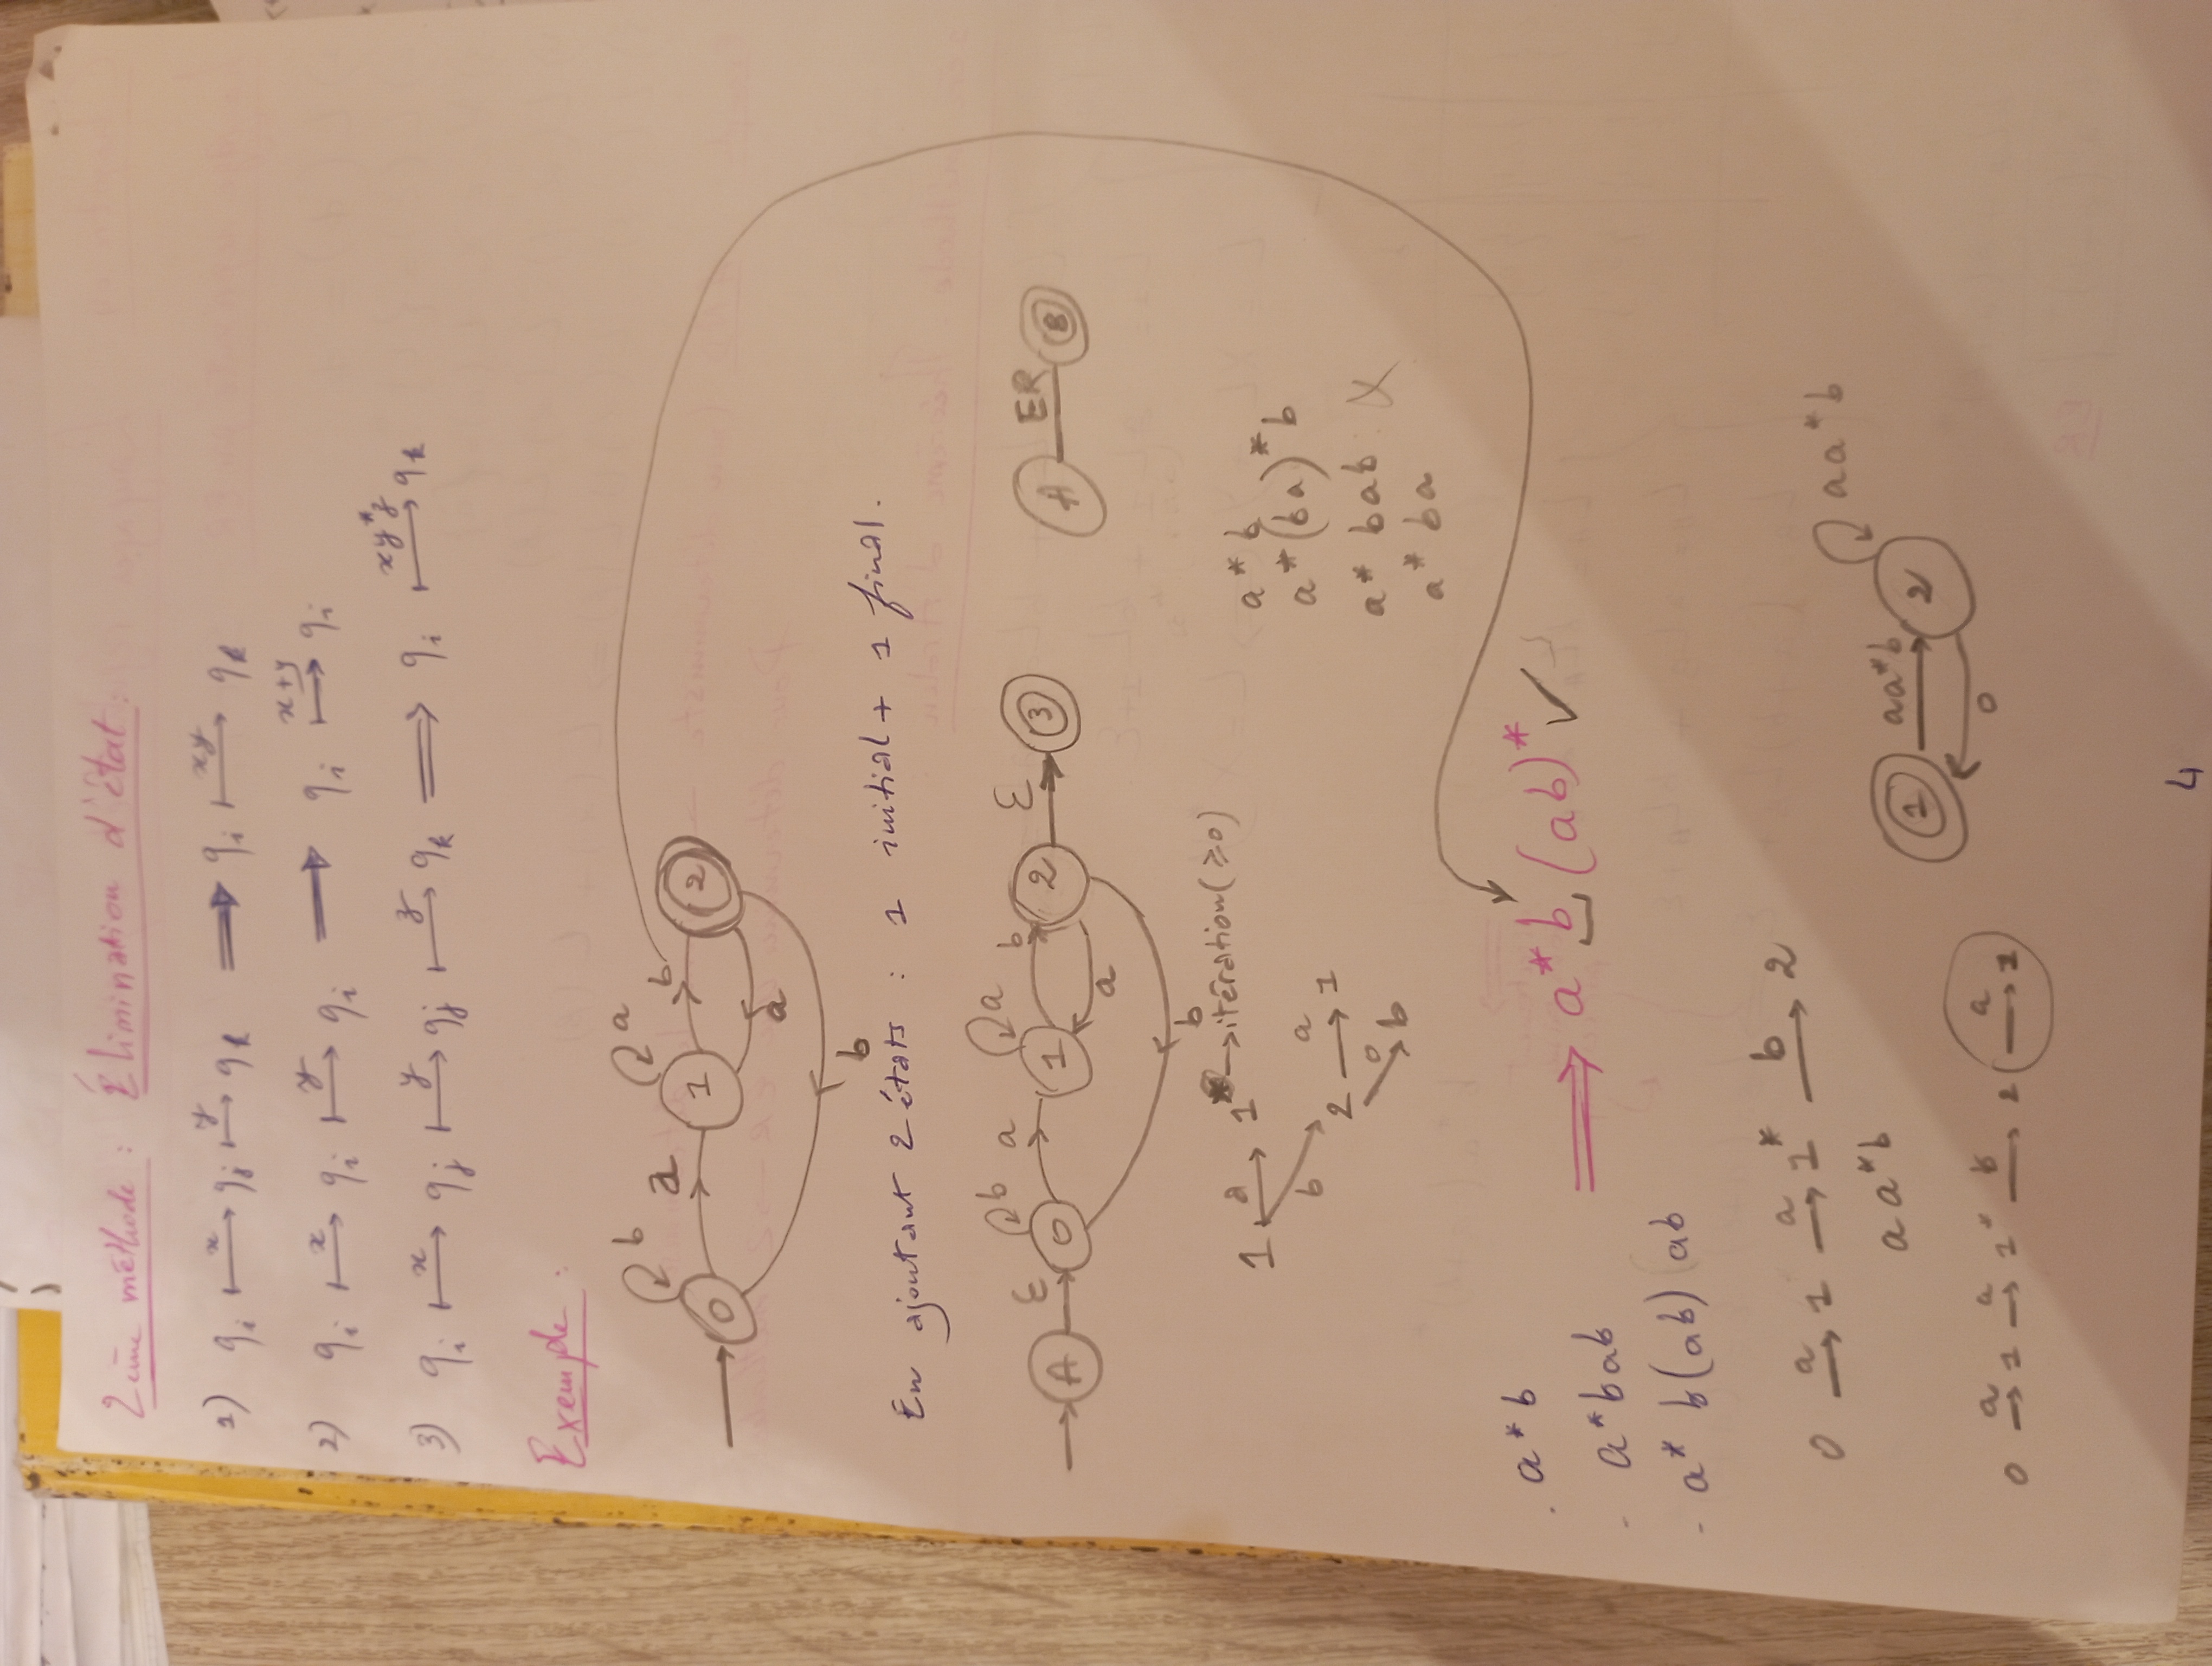 2ème méthode : Élimination d'état :
1) qi ⟼x qj ⟼y qk ⟹ qi ⟼xy qk
2) qi ⟼x qi ⟼y qi ⟹ qi ⟼x+y qi
3) qi ⟼x qj ⟼y qj ⟼z qk ⟹ qi ⟼xy*z qk
Exemple :
b a a b
0 1 2
a
b
En ajoutant 2 états : 1 initial + 1 final.
ε b a a b ε ER
A 0 1 2 3 A B
a
b
1 a→ 1* → itération (≥0)
b 2 a→ 1
b
a*b
a*(ba)*b
a* bab : X
a* ba
. a*b
- a*bab
- a* b(ab) ab
⟹ a* b (ab)* ✓
0 a→ 1 a→ 1* b→ 2
aa*b
1 aa*b 2 aa*b
0 a→ 1 a→ 1* b→ 2 a→ 1
4